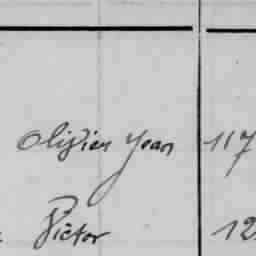 Olivier Jean 117
Victor 12